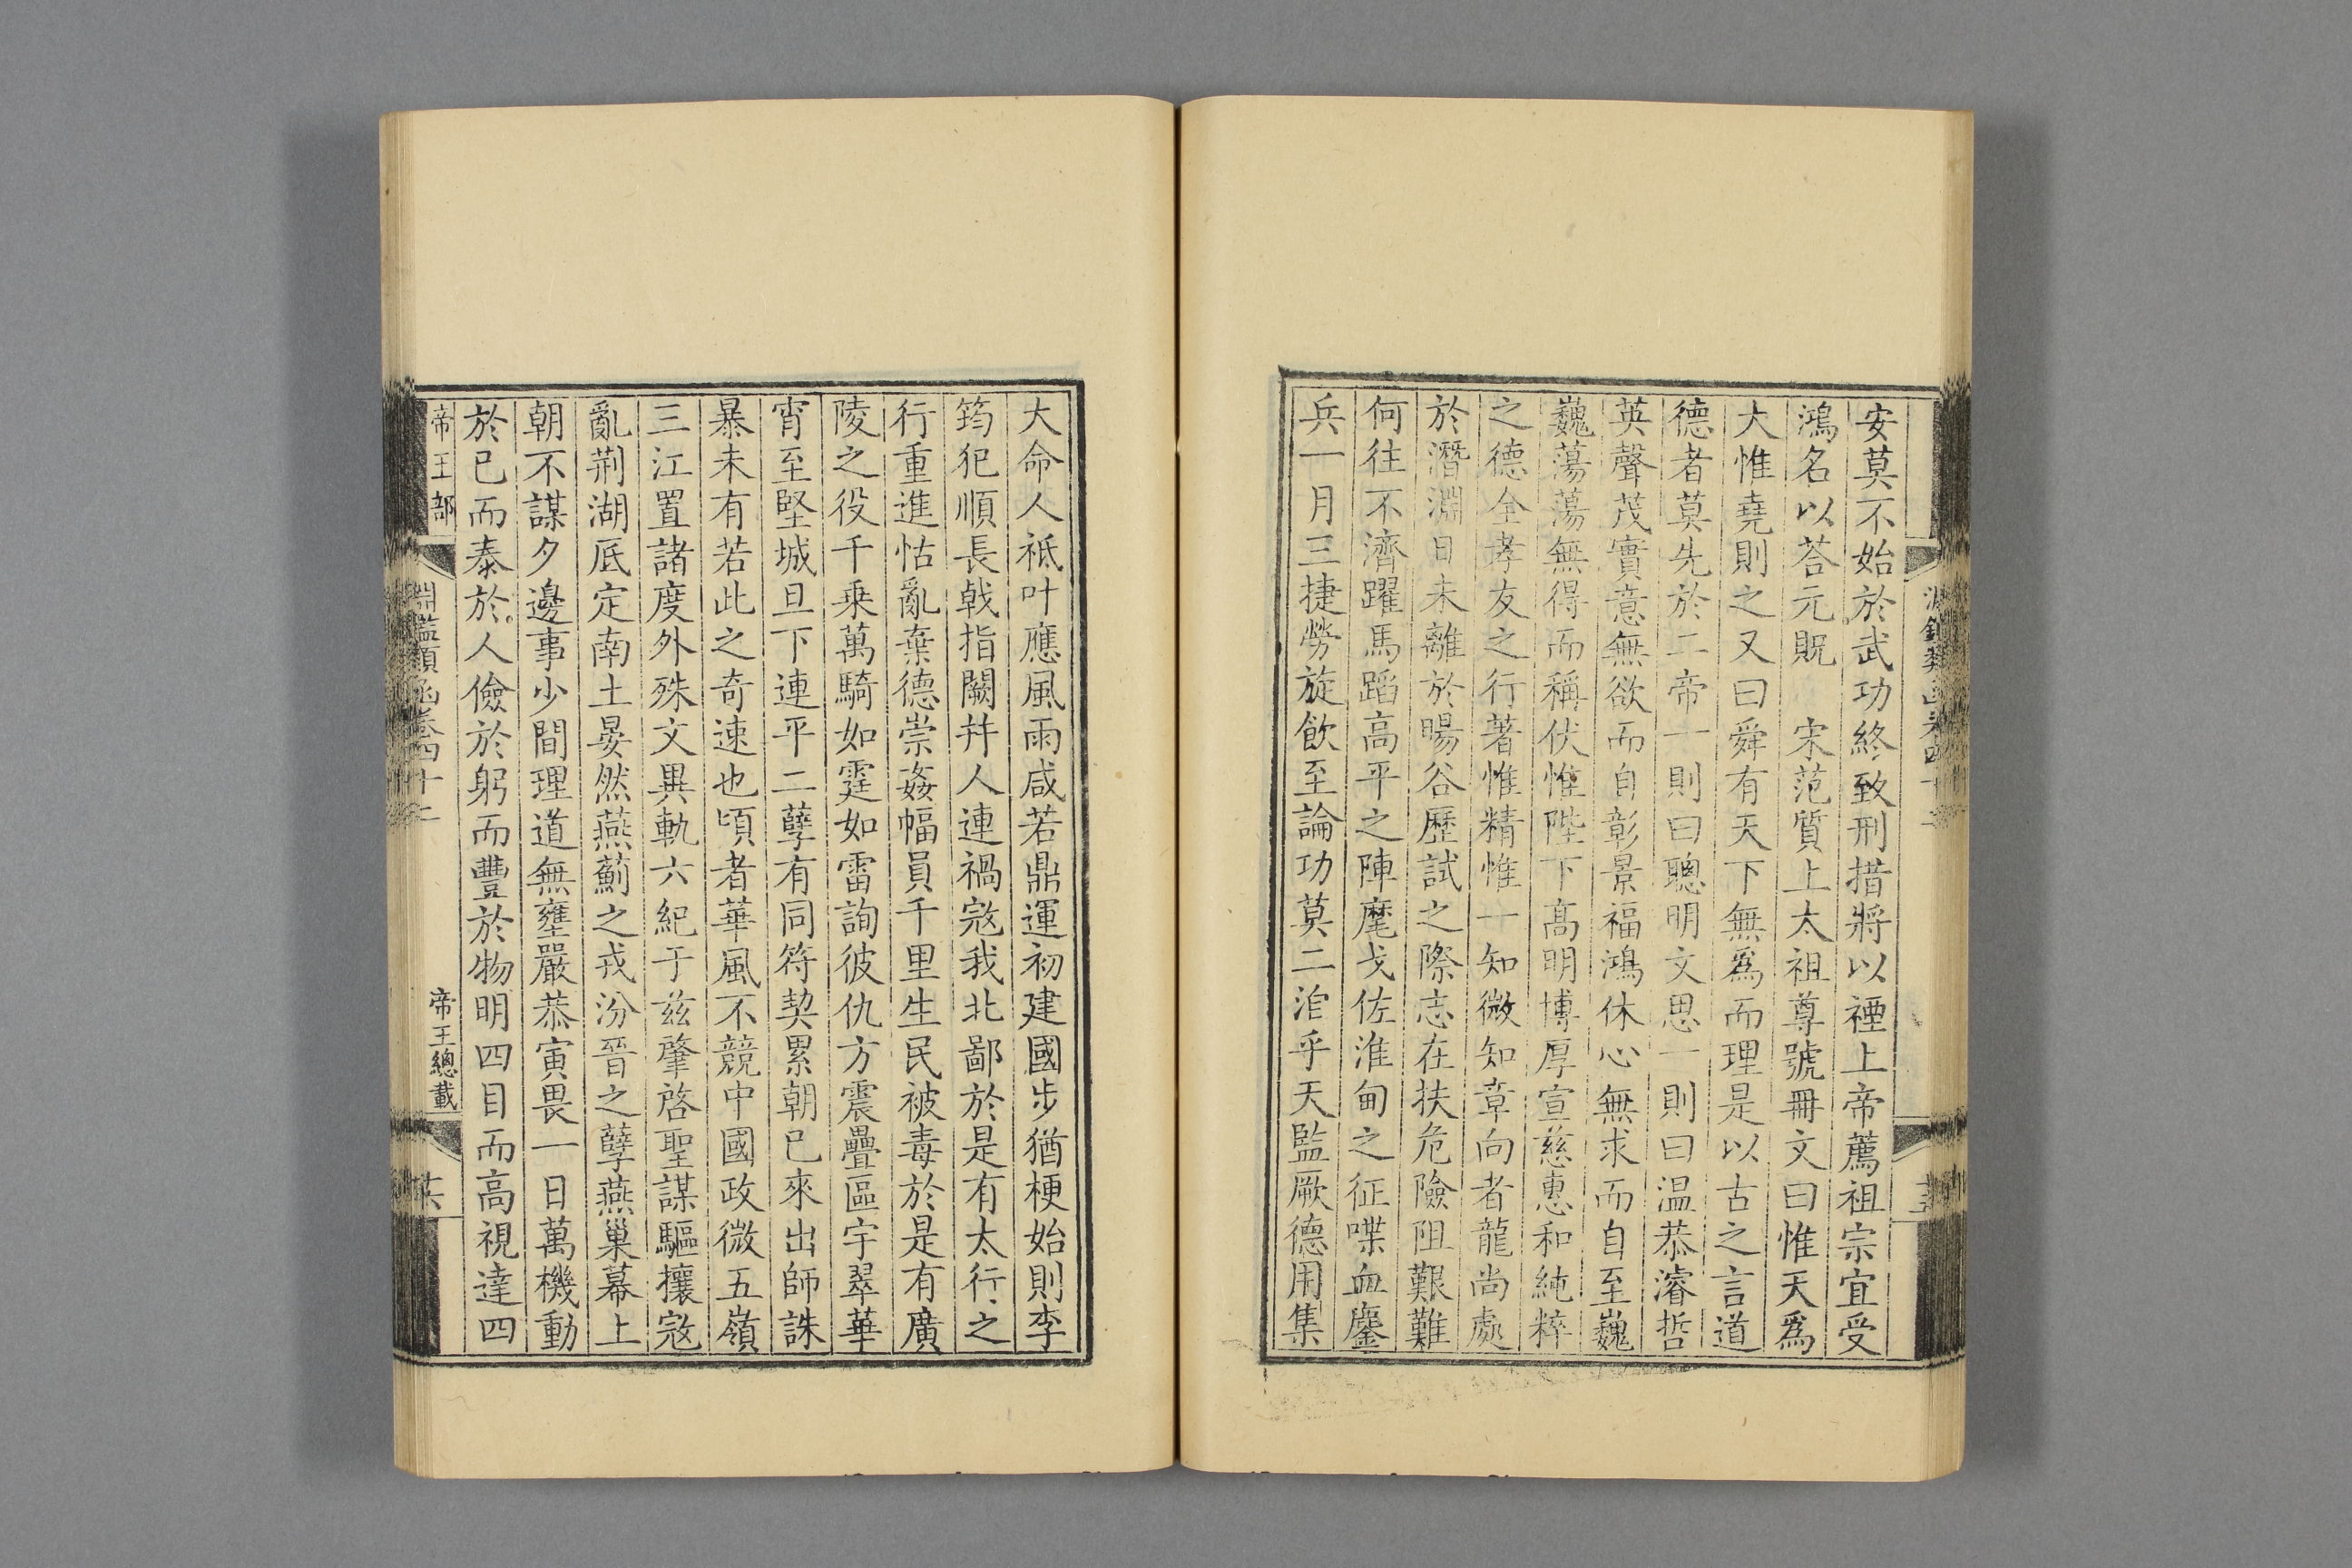 安莫不始於武功終致刑措將以禋上帝薦祖宗宜受
鴻名以荅元貺　宋范質上太祖尊號冊文曰惟天爲
大惟堯則之又曰舜有天下無爲而理是以古之言道
德者莫先於二帝一則曰聰明文思一則曰温恭濬哲
英聲茂實意無欲而自彰景福鴻休心無求而自至巍
巍蕩蕩無得而稱伏惟陛下高明博厚宣慈惠和純粹
之德全孝友之行著惟精惟一知微知章向者龍尚處
於潛淵日未離於暘谷歷試之際志在扶危險阻艱難
何往不濟躍馬蹈高平之陣麾戈佐淮甸之征喋血鏖
兵一月三捷勞旋飲至論功莫二洎乎天監厥德用集
大命人祗叶應風雨咸若鼎運初建國步猶梗始則李
筠犯順長戟指闕幷人連禍寇我北鄙於是有太行之
行重進怙亂棄德崇姦幅員千里生民被毒於是有廣
陵之役千乘萬騎如霆如雷詢彼仇方震疊區宇翠華
宵至堅城旦下連平二孽有同符契累朝已來出師誅
暴未有若此之奇速也頃者華風不競中國政微五嶺
三江置諸度外殊文異軌六紀于兹肇啓聖謀驅攘寇
亂荆湖底定南土晏然燕薊之戎汾晉之孽燕巢幕上
朝不謀夕邊事少間理道無壅嚴恭寅畏一日萬機動
於已而泰於人儉於躬而豐於物明四目而高視達四
帝王部
淵鑑類函卷四十二
帝王總載
共